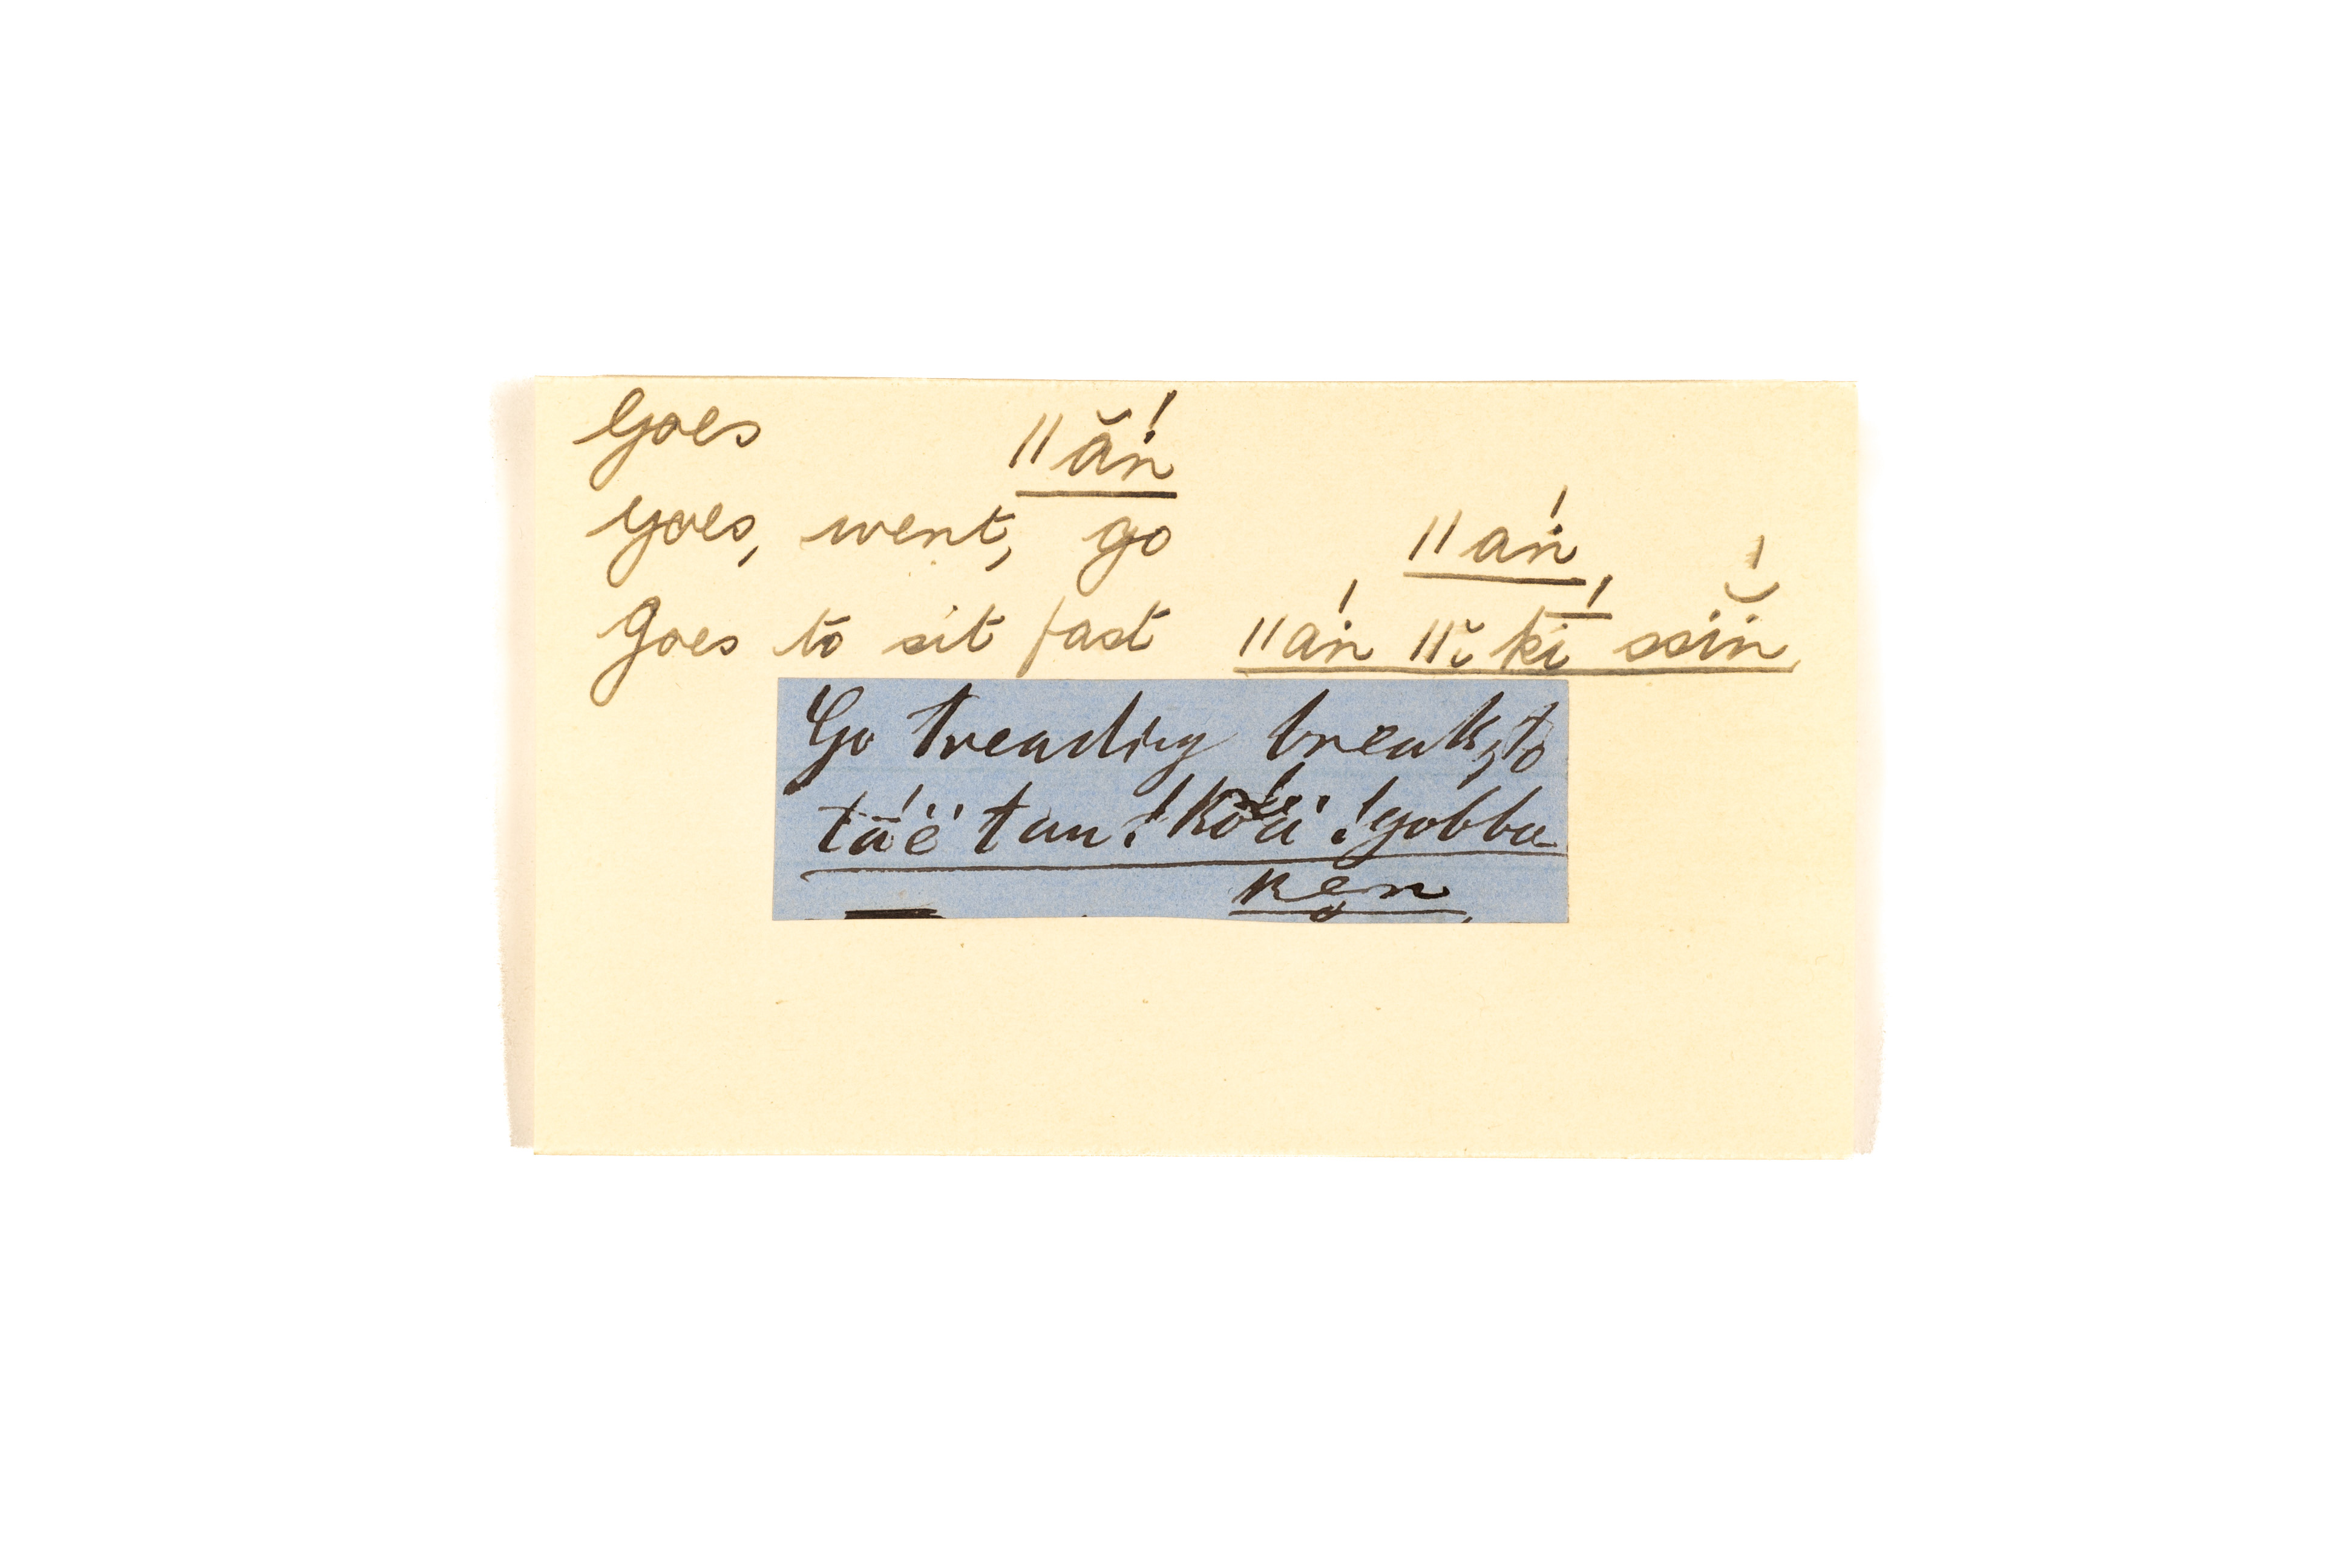 Goes ǁăṅ́
goes, went, go ǁaṅ́,
Goes to sit fast ǁaṅ́ ǁĭ kī́ ssĭṅ́,
Go treading break, to
tā́ë tau ! !gobba-
ken,